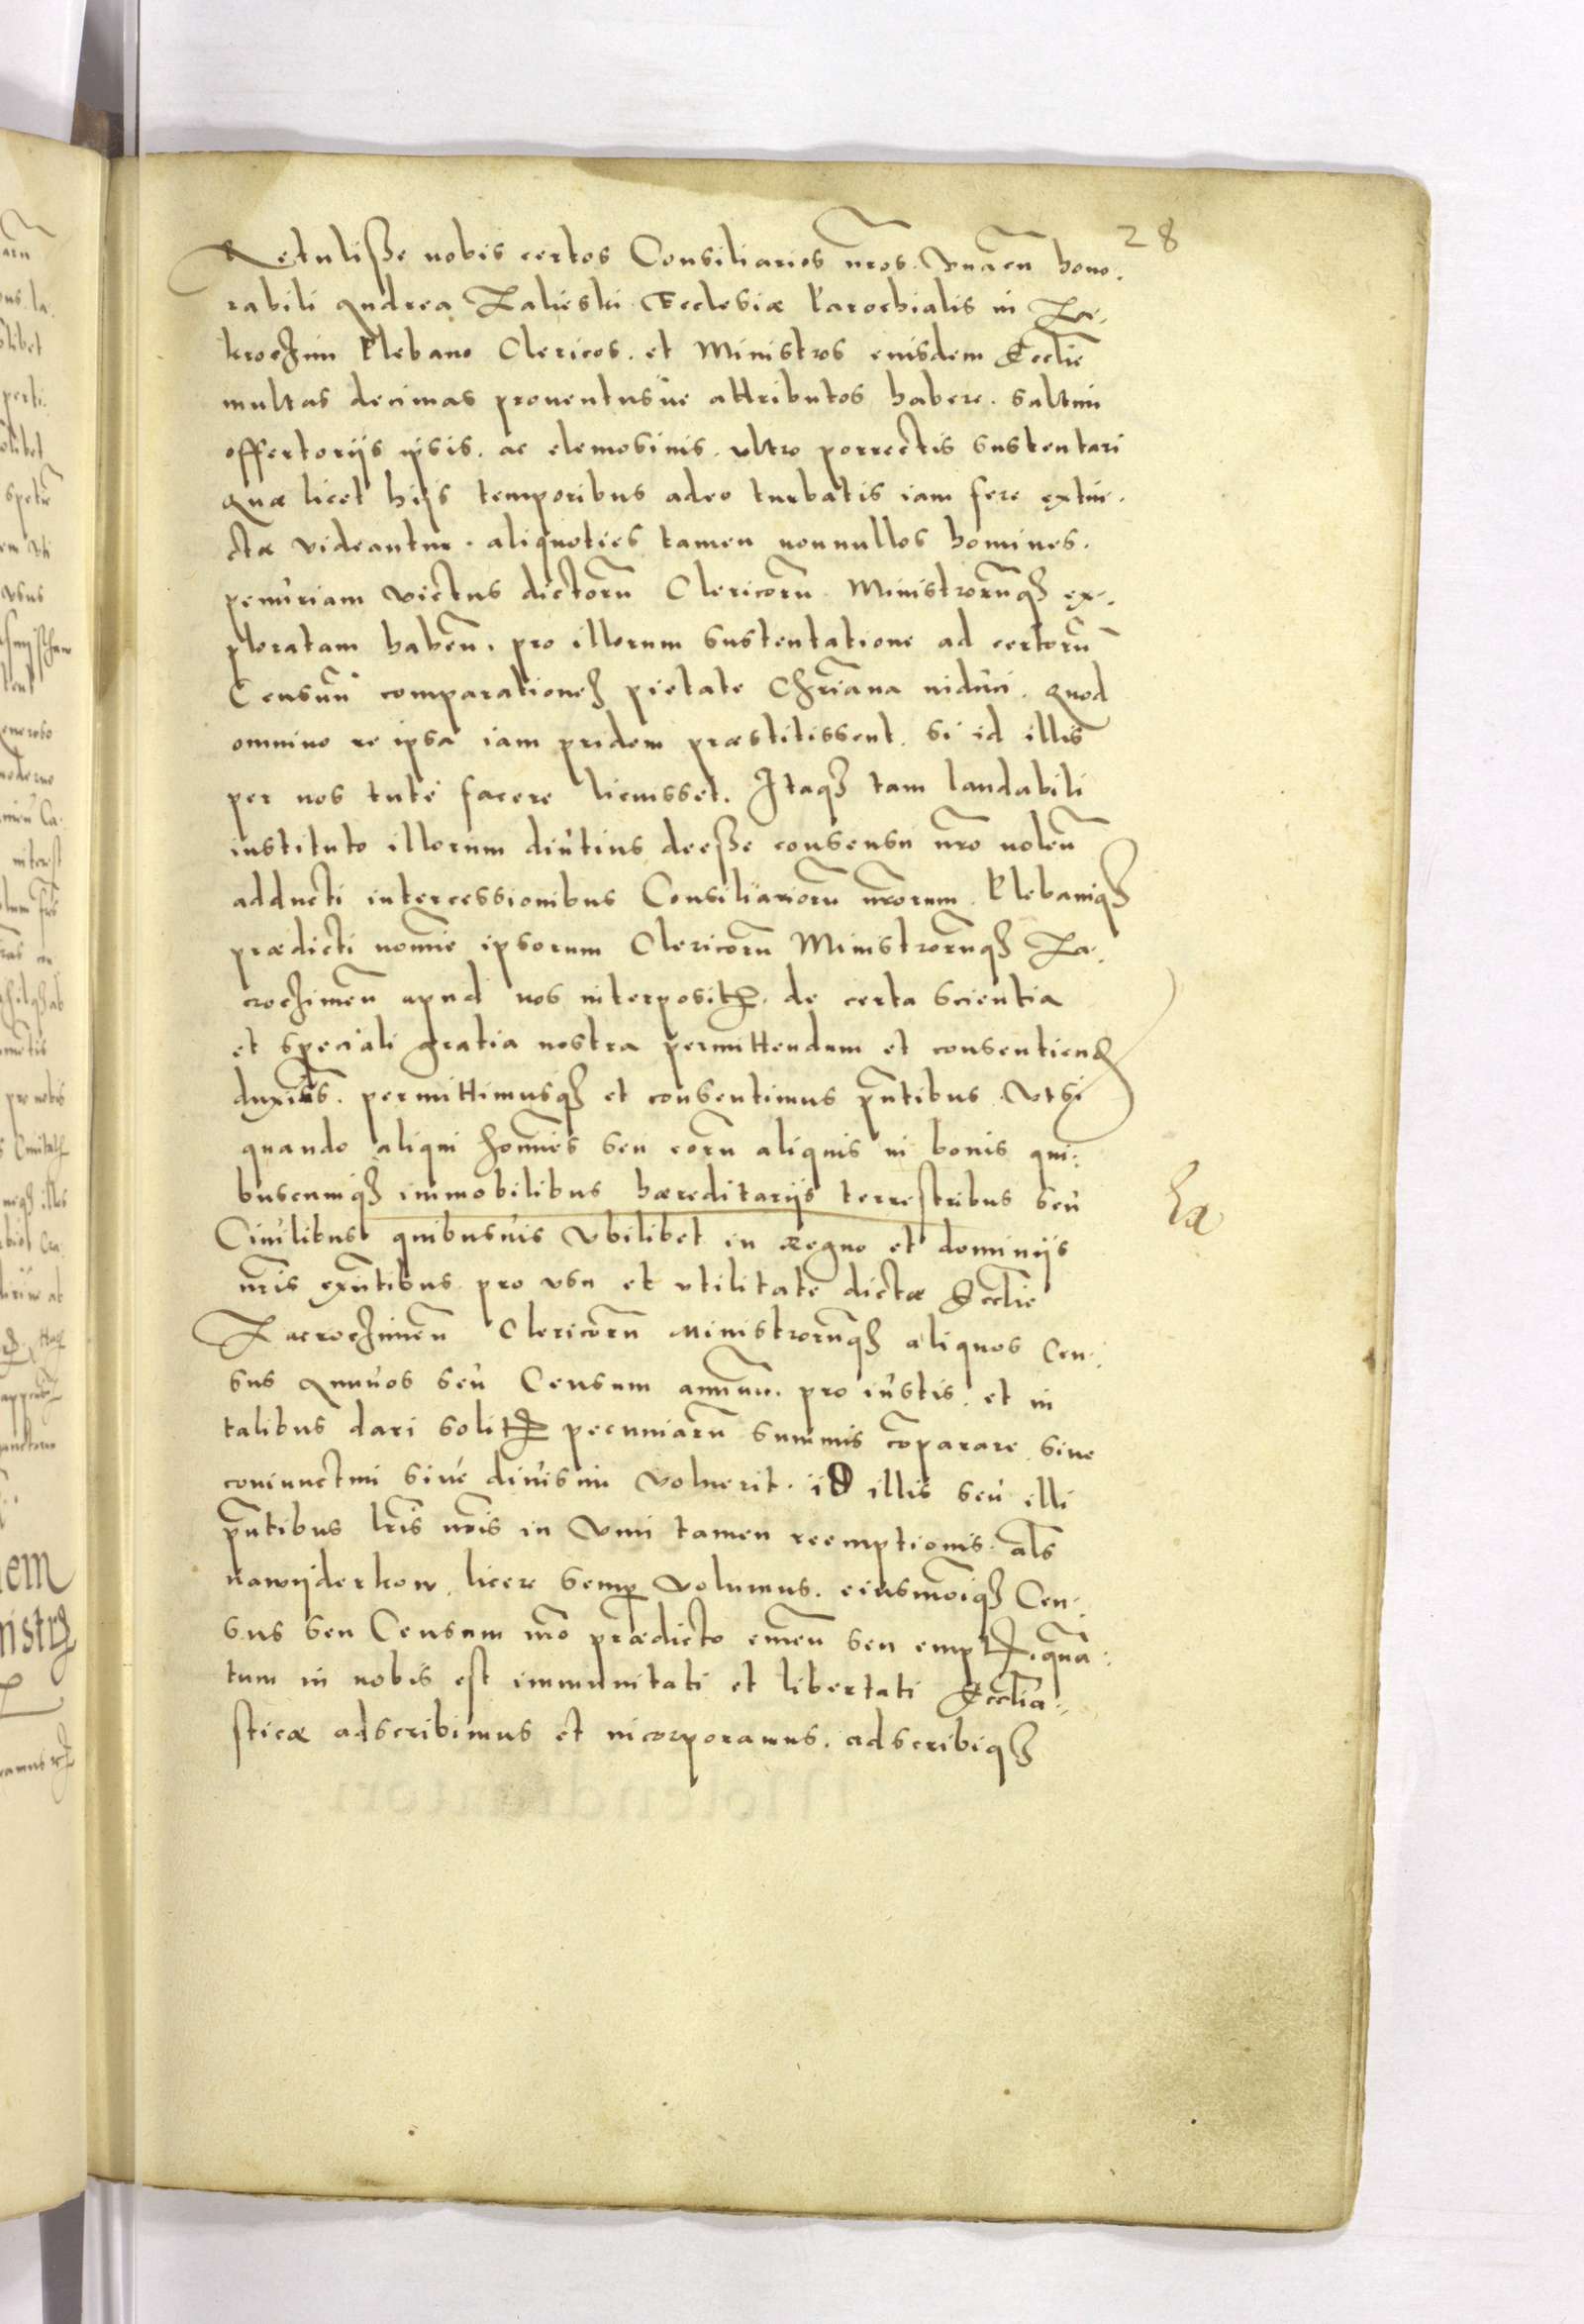 28
Retulisse nobis certos Consiliarios nr̃os. Vnacũ hono.
rabili Andrea Zalieski Ecclesiæ Parochialis in Za.
kroczim Plebano Clericos. et Ministros eiusdem Eccliẽ
multas decimas prouentusue attributos habere. saltim
offertorijs ipsis. ac elemosinis. vltro porrectis sustentari
quæ licet hijs temporibus adeo turbatis iam fere extin.
ctæ videantur. aliquoties tamen nonnullos homines.
penuriam victus dictorũ Clericorũ Ministrorũqꝫ ex.
ploratam habeñ. pro illorum sustentatione ad certorũ
Censuũ comparationeꝫ pietate Chr̃iana niduci. quod
omnino re ipsa iam pridem præstitissent. si id illis
per nos tute facere licuisset. Itaqꝫ tam laudabili
instituto illorum diutius deesse consensu nr̃o noleñ
adducti intercessionibus Consiliariorũ nr̃orum. Plebaniqꝫ
prædicti nomĩe ipsorum Clericorũ Ministrorũqꝫ Za.
croczimeñ apud nos interposit. de certa scientia
et speciali gratia nostra permittendum et consentiend
duxim̃s. permittimusqꝫ et consentimus pñtibus. Vt si
quando aliqui homĩes seu eorũ aliquis in bonis qui.
buscumqꝫ immobilibus hæreditarijs terrestribus seu
Ciuilibus quibusuis Vbilibet in regno et dominijs
nr̃is exñtibus pro vsu et vtilitate dictæ Eccliẽ
Zacroczimeñ Clericorũ Ministrorũqꝫ aliquos Cen.
sus Annuos seu Censum annuum. pro iustis. et in
talibus dari solit pecuniarũ summis cõparare. siue
coniunctim siue diuisim voluerit. id illis seu illi
pñtibus lr̃is nr̃is in Vim tamen reemptionis. als
nawyderkow. licere semp̃ volumus. eiusmõiqꝫ Cen.
sus seu Censum mõ prædicto emeñ seu empt. quã.
tum in nobis est immunitati et libertati Ecclia.
sticæ adscribimus et incorporamus. adscribiqꝫ